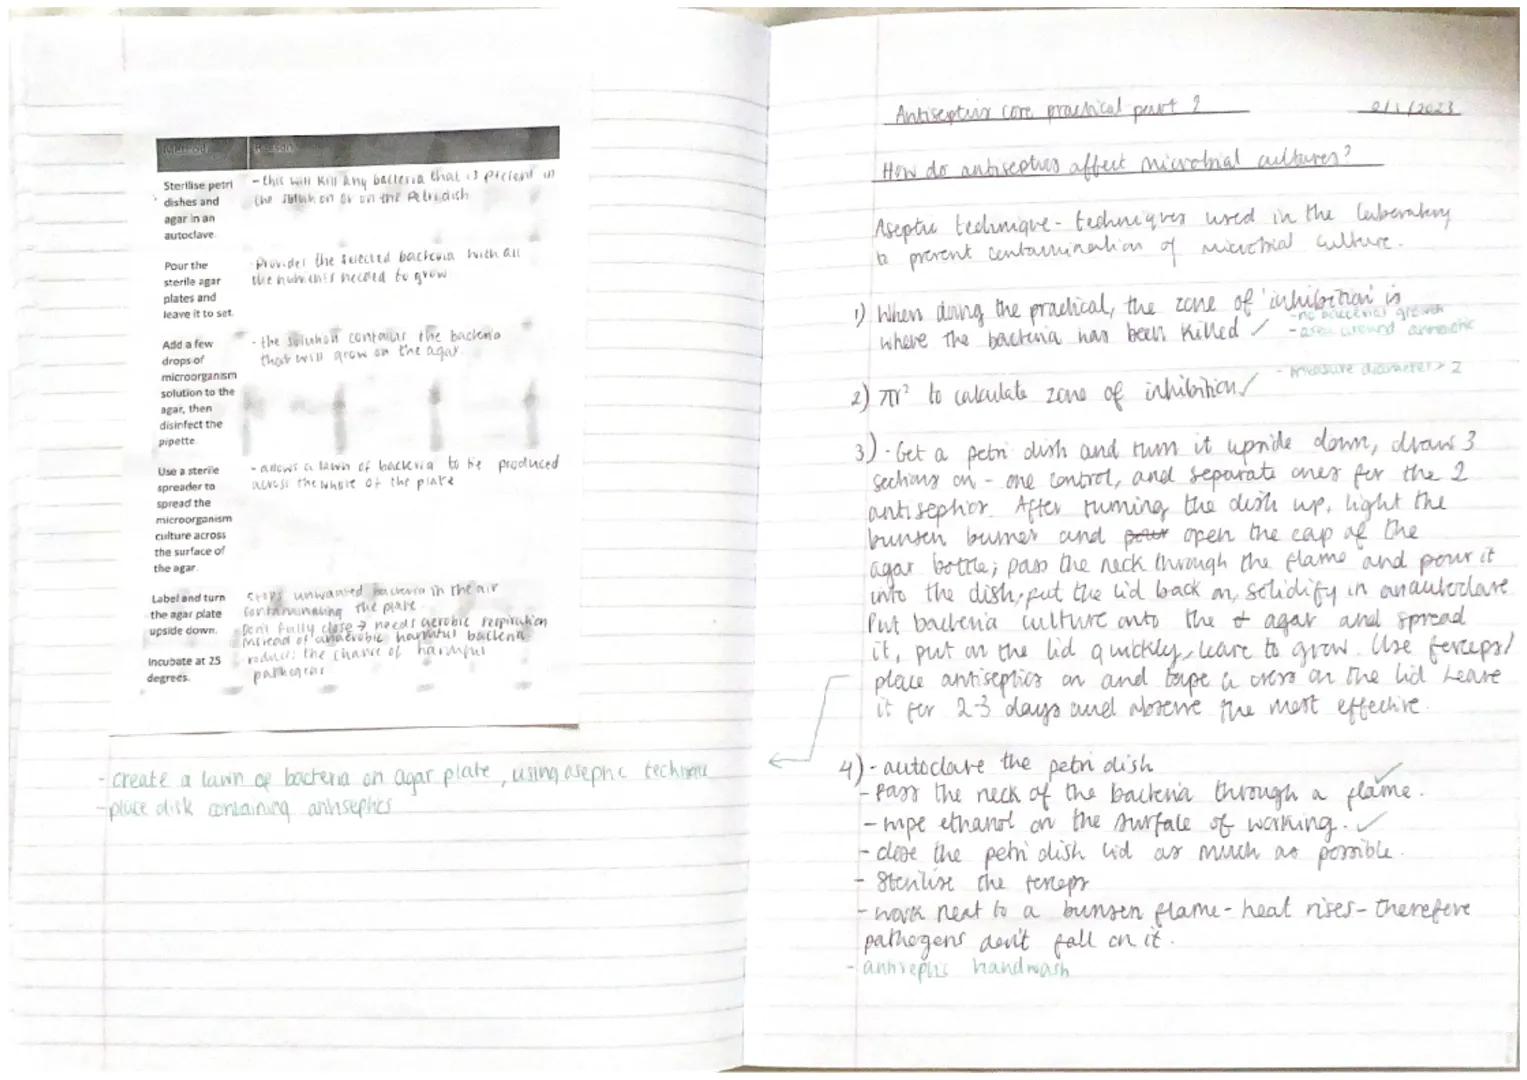 Method Reason
Sterilise petri dishes and agar in an autoclave.
- this will kill any bacteria that is present in
the solution or on the Petri dish
Pour the sterile agar plates and leave it to set.
- Provides the selected bacteria with all
the nutrients needed to grow
Add a few drops of microorganism solution to the agar, then disinfect the pipette.
- the solution contains the bacteria
that will grow on the agar.
Use a sterile spreader to spread the microorganism culture across the surface of the agar.
- allows a lawn of bacteria to be produced
across the whole of the plate
Label and turn the agar plate upside down.
Stops unwanted bacteria in the air
contaminating the plate
Don't fully close → needs aerobic respiration
instead of anaerobic harmful bacteria
Incubate at 25 degrees.
reduces the chance of harmful
pathogens
- create a lawn of bacteria on agar plate, using aseptic technique
- place disk containing antiseptics
Antiseptics core practical part 2
/1/2023
How do antiseptics affect microbial cultures?
Aseptic technique - techniques used in the laboratory
to prevent contamination of microbial culture.
1) When doing the practical, the zone of 'inhibition' is
where the bacteria has been killed ✓
- no bacterial growth
- area around antibiotic
2) πr² to calculate zone of inhibition ✓ - measure diameter ÷ 2
3) - Get a petri dish and turn it upside down, draw 3
sections on - one control, and separate ones for the 2
antiseptics. After turning the dish up, light the
bunsen burner and pour open the cap of the
agar bottle; pass the neck through the flame and pour it
into the dish, put the lid back on, solidify in an autoclave
Put bacteria culture onto the agar and spread
it, put on the lid quickly, leave to grow. Use forceps/
place antiseptics on and tape a cross on the lid Leave
it for 2-3 days and observe the most effective.
4) - autoclave the petri dish
- Pass the neck of the bacteria through a flame. ✓
- wipe ethanol on the surface of working. ✓
- close the petri dish lid as much as possible.
- Sterilise the forceps
- work next to a bunsen flame - heat rises - therefore
pathogens don't fall on it.
- antiseptic handwash